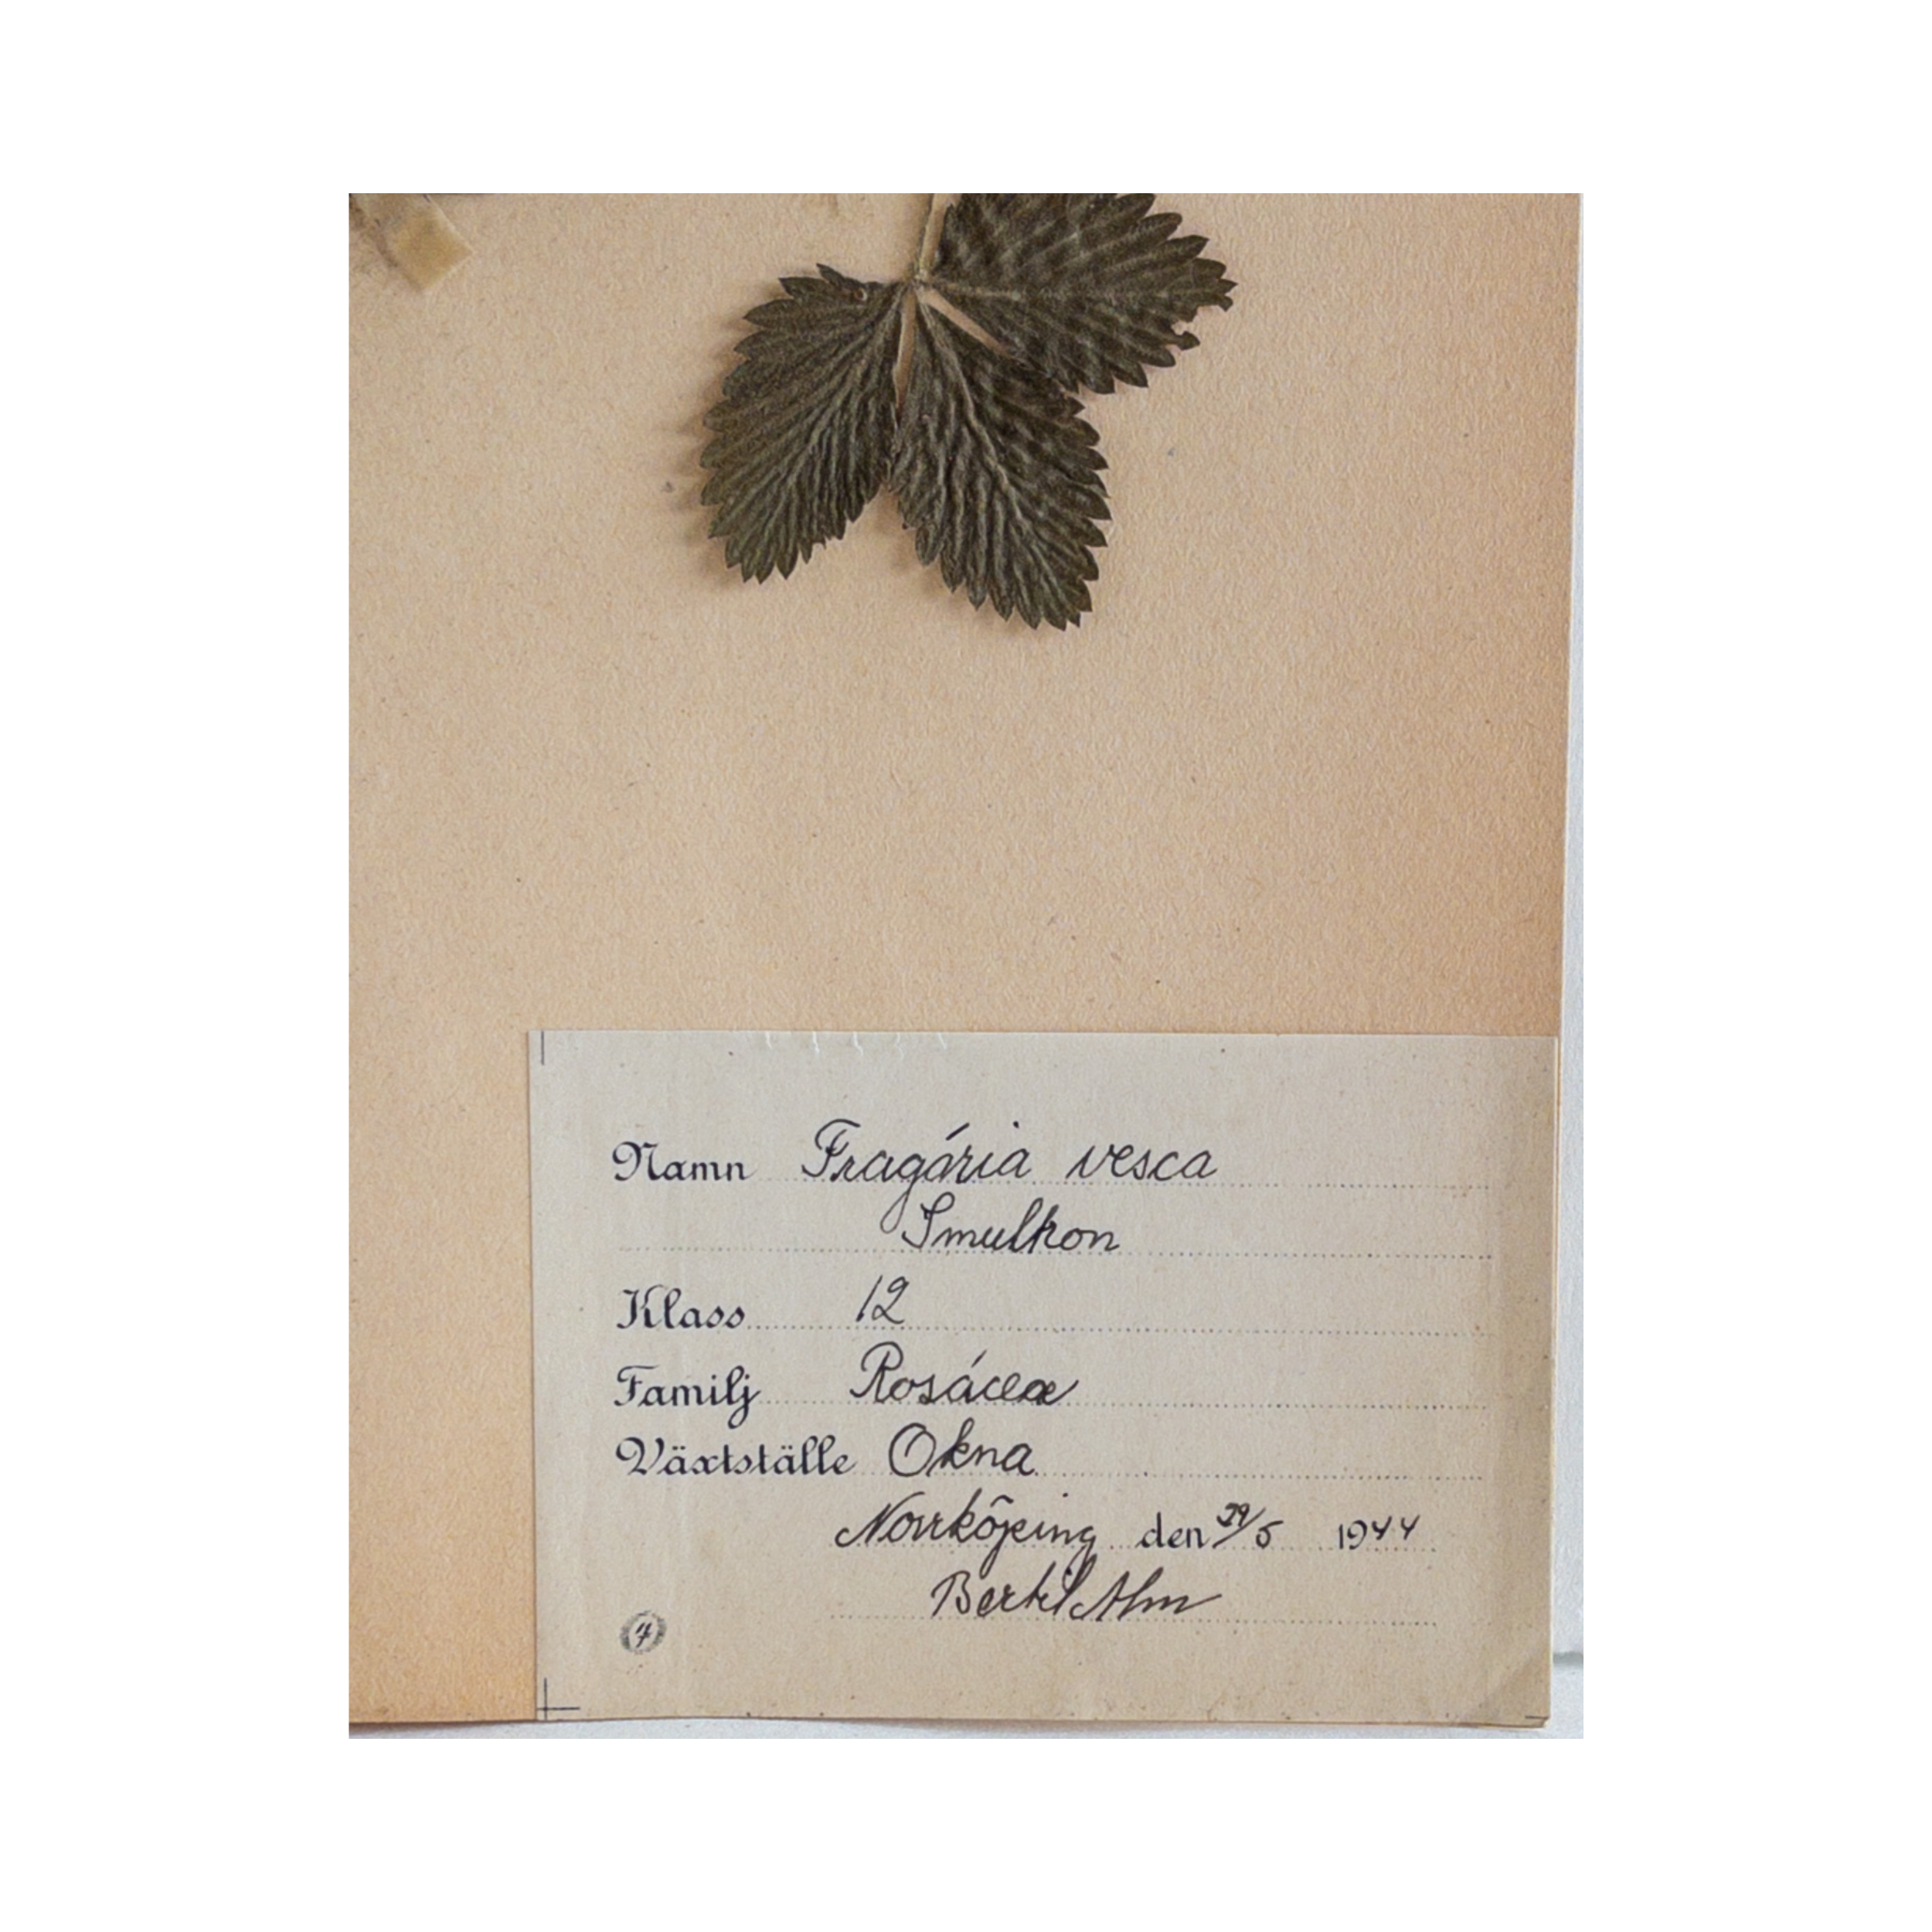 Namn Fragária vesca
Smulkon
Klass 12
Familj Rosáceæ
Växtställe Okna
Norrköping den 29/5 1944
Bertil Alm
4